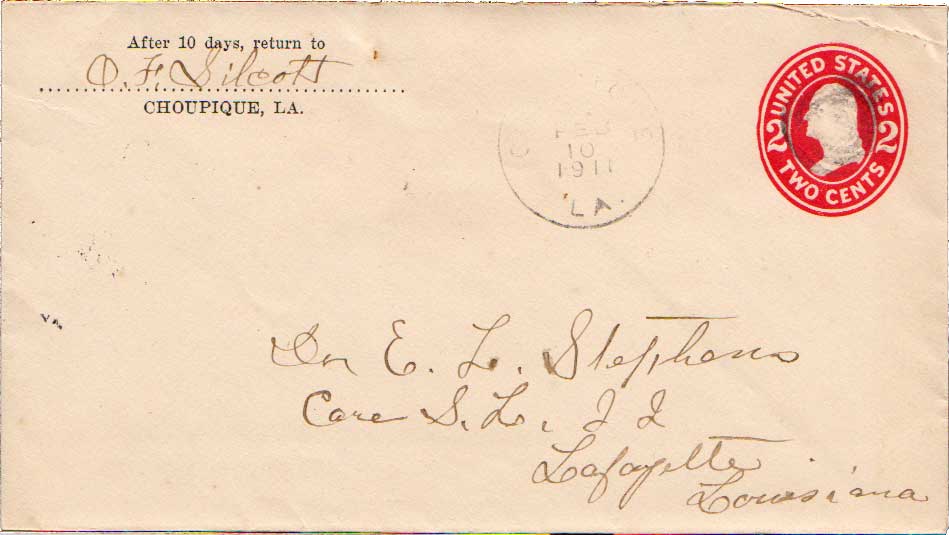 After 10 days, return to
O. F. Gilcott
CHOUPIQUE, LA.
FEB
10
1911
LA.
UNITED STATES
2 2
TWO CENTS
Dr E. L. Stephens
Care S. L. I I
Lafayette
Louisiana